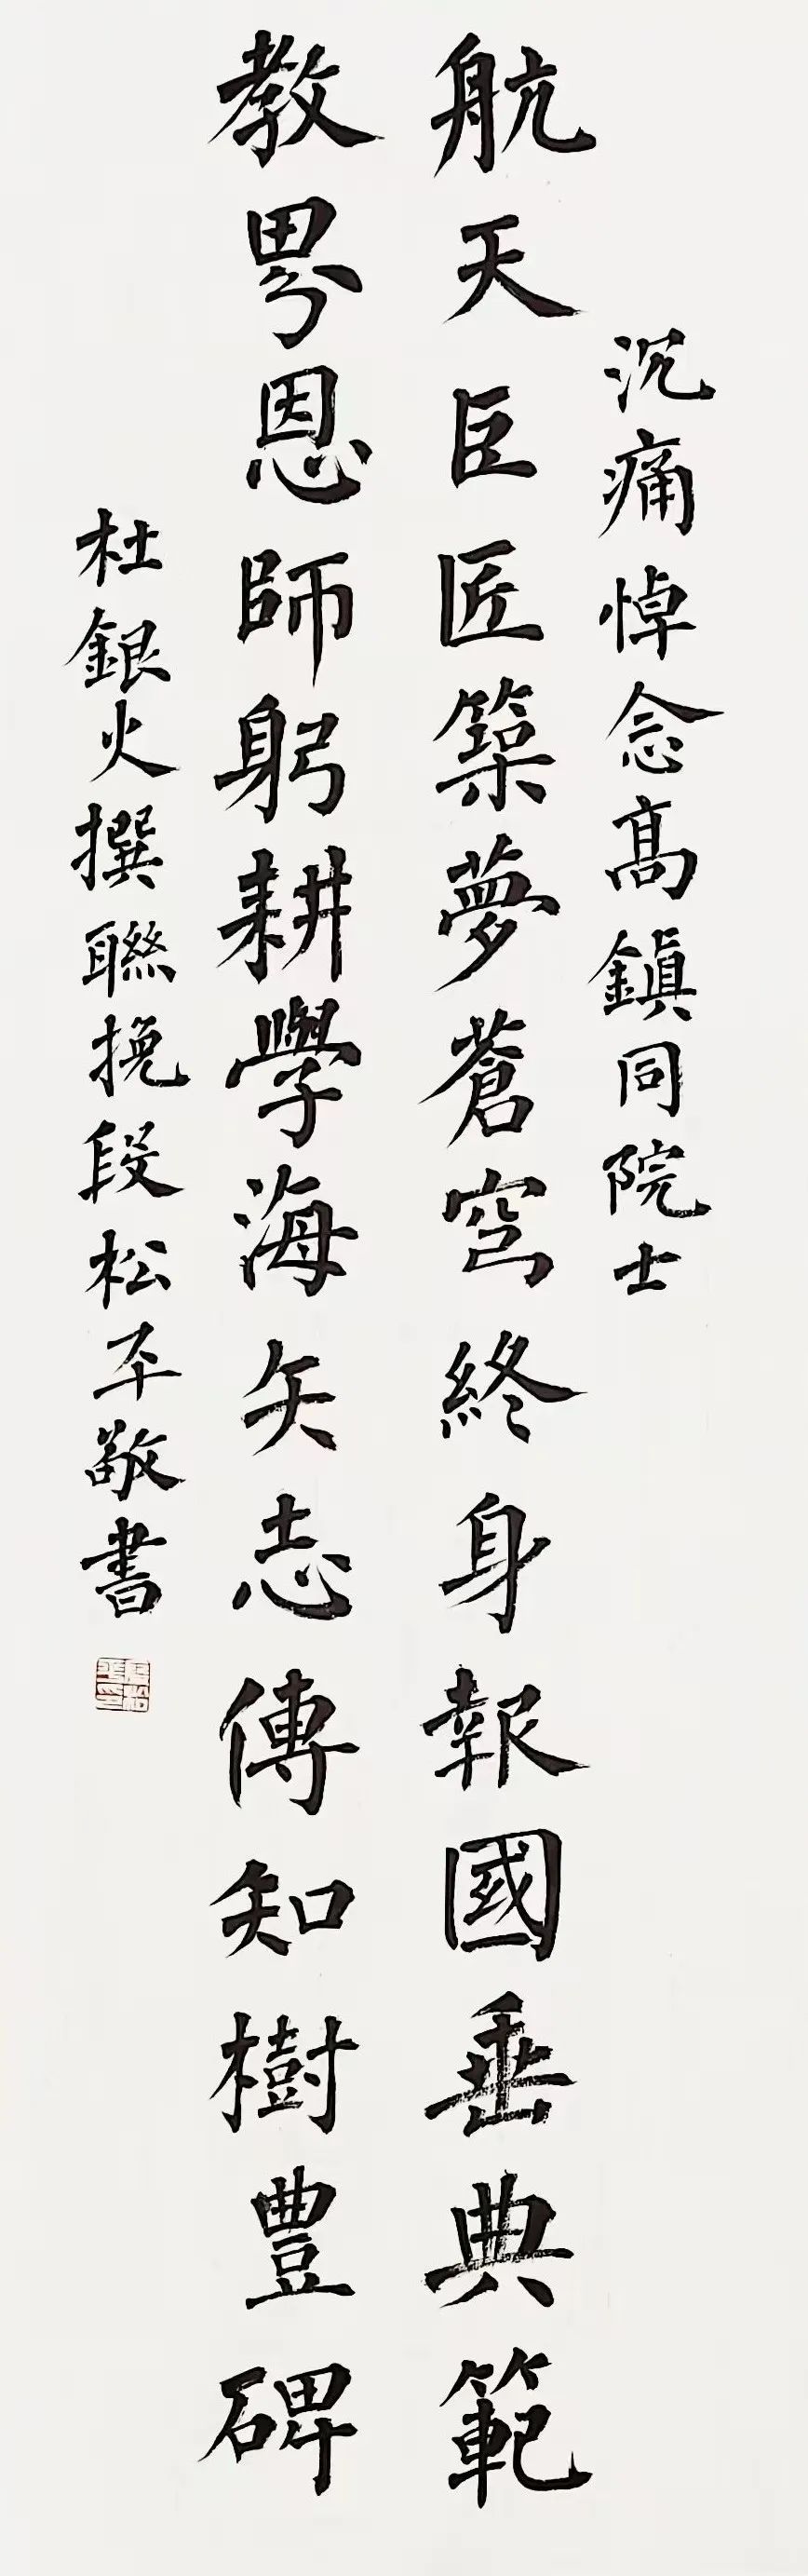 沉痛悼念高鎮同院士
航天巨匠築夢蒼穹終身報國垂典範
教界恩師躬耕學海矢志傳知樹豐碑
杜銀火撰聯挽段松平敬書